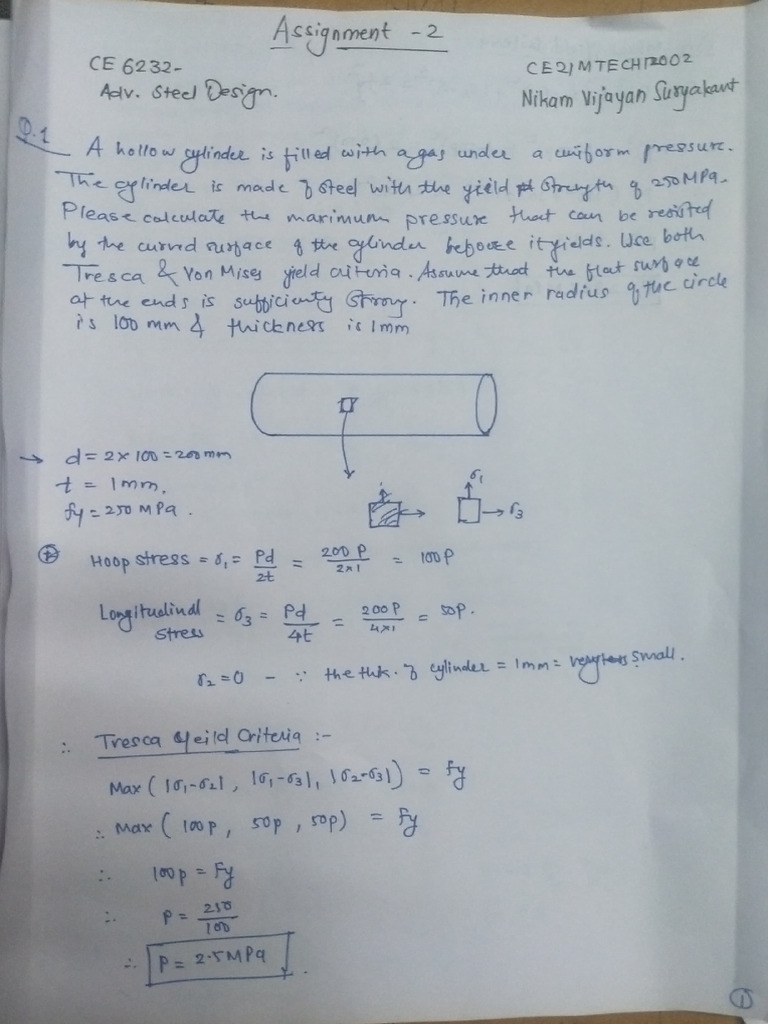 Assignment - 2
CE 6232-
Adv. Steel Design.
CE21MTECH12002
Nikam Vijayan Suryakant
Q.1
A hollow cylinder is filled with a gas under a uniform pressure.
The cylinder is made of steel with the yield strength of 250 MPa.
Please calculate the maximum pressure that can be resisted
by the curved surface of the cylinder before it yields. Use both
Tresca & Von Mises yield criteria. Assume that the flat surface
at the ends is sufficiently strong. The inner radius of the circle
is 100 mm & thickness is 1mm
→ d = 2 × 100 = 200mm
t = 1mm,
fy = 250 MPa.
σ1
σ3
Hoop stress = σ1 = Pd/2t = 200P/2×1 = 100P
Longitudinal stress = σ3 = Pd/4t = 200P/4×1 = 50P.
σ2 = 0 - ∵ the thk. of cylinder = 1mm = very small.
∴ Tresca Yeild Criteria :-
Max ( |σ1-σ2| , |σ1-σ3| , |σ2-σ3| ) = fy
∴ Max ( 100p , 50p , 50p ) = fy
∴ 100p = Fy
∴ P = 250/100
∴ P = 2.5MPa
1